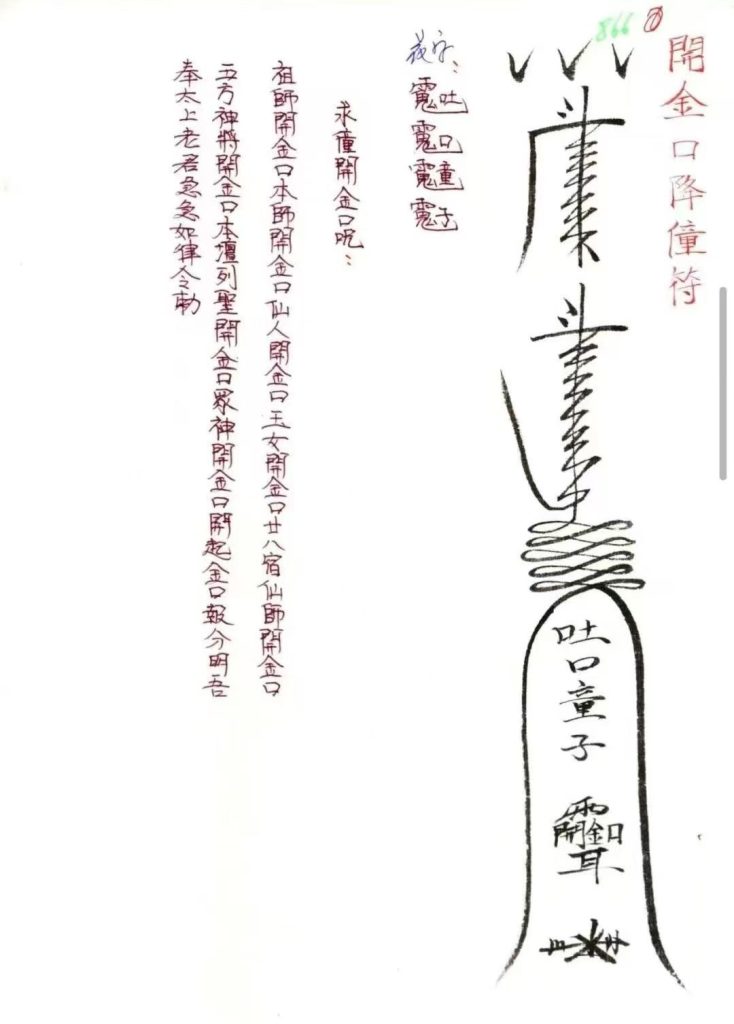 866
開金口降僮符
吐口童子
求僮開金口咒：
祖師開金口本師開金口仙人開金口玉女開金口廿八宿仙師開金口
五方神將開金口本壇列聖開金口眾神開金口開起金口報分明吾
奉太上老君急急如律令勅